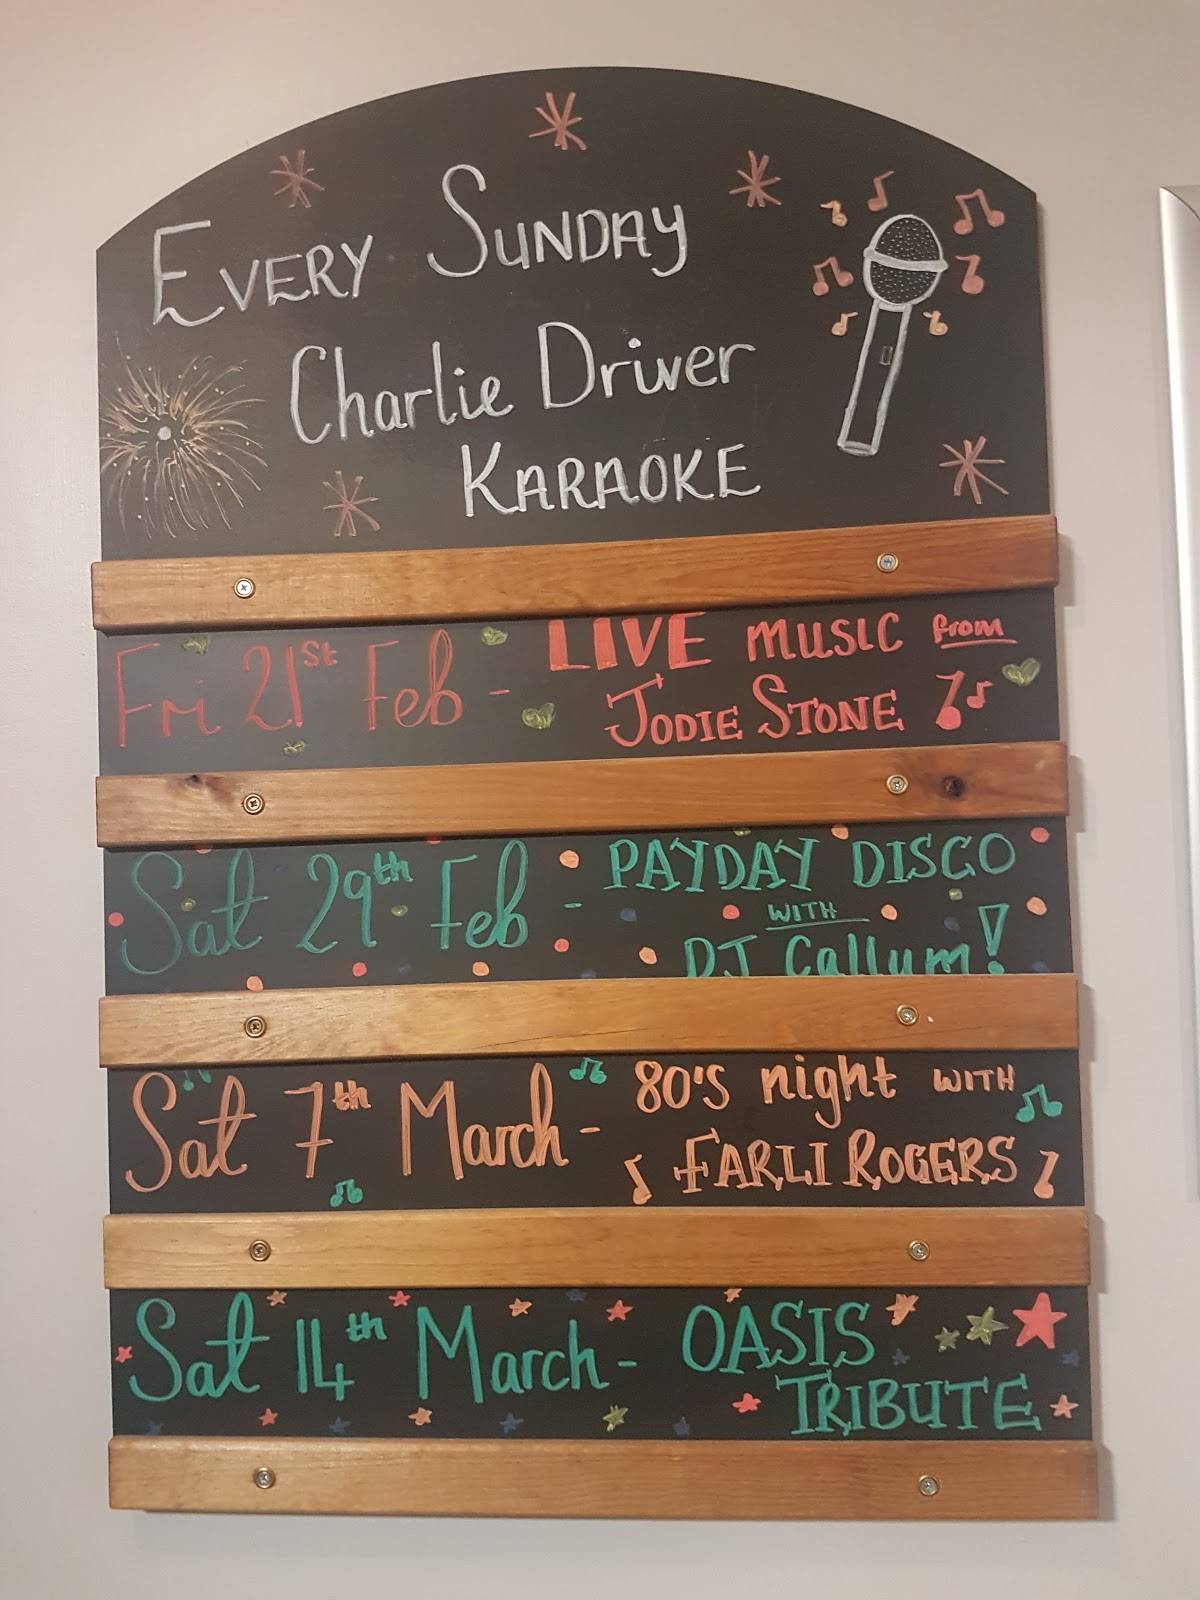 EVERY SUNDAY
Charlie Driver
KARAOKE
Fri 21st Feb - LIVE music from
JODIE STONE
Sat 29th Feb - PAYDAY DISCO
WITH
DJ Callum!
Sat 7th March - 80's night WITH
FARLI ROGERS
Sat 14th March - OASIS
TRIBUTE